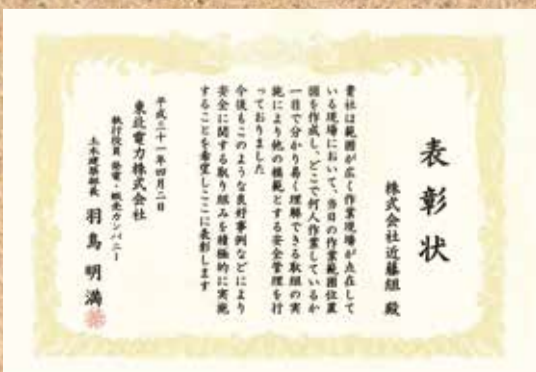 表彰状
株式会社近藤組 殿
貴社は範囲が広く作業現場が点在して
いる現場において、当日の作業範囲位置
図を作成し、どこで何人作業しているか
一目で分かり易く理解できる取組の実
施により他の模範とする安全管理を行
っておりました
今後もこのような良好事例などにより
安全に関する取り組みを積極的に実施
することを希望しここに表彰します
平成三十一年四月二日
東北電力株式会社
執行役員 発電・販売カンパニー
土木建築部長 羽鳥 明満